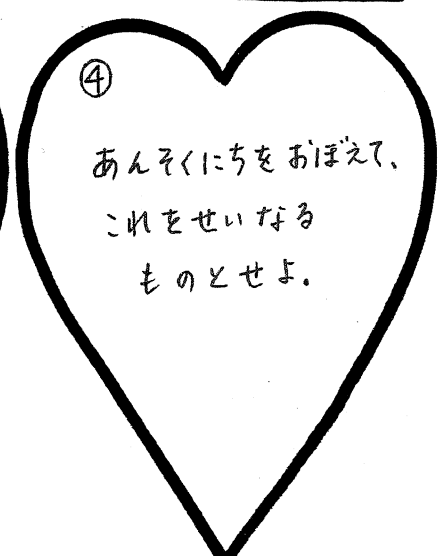 ④
あんそくにちをおぼえて、
これをせいなる
ものとせよ.